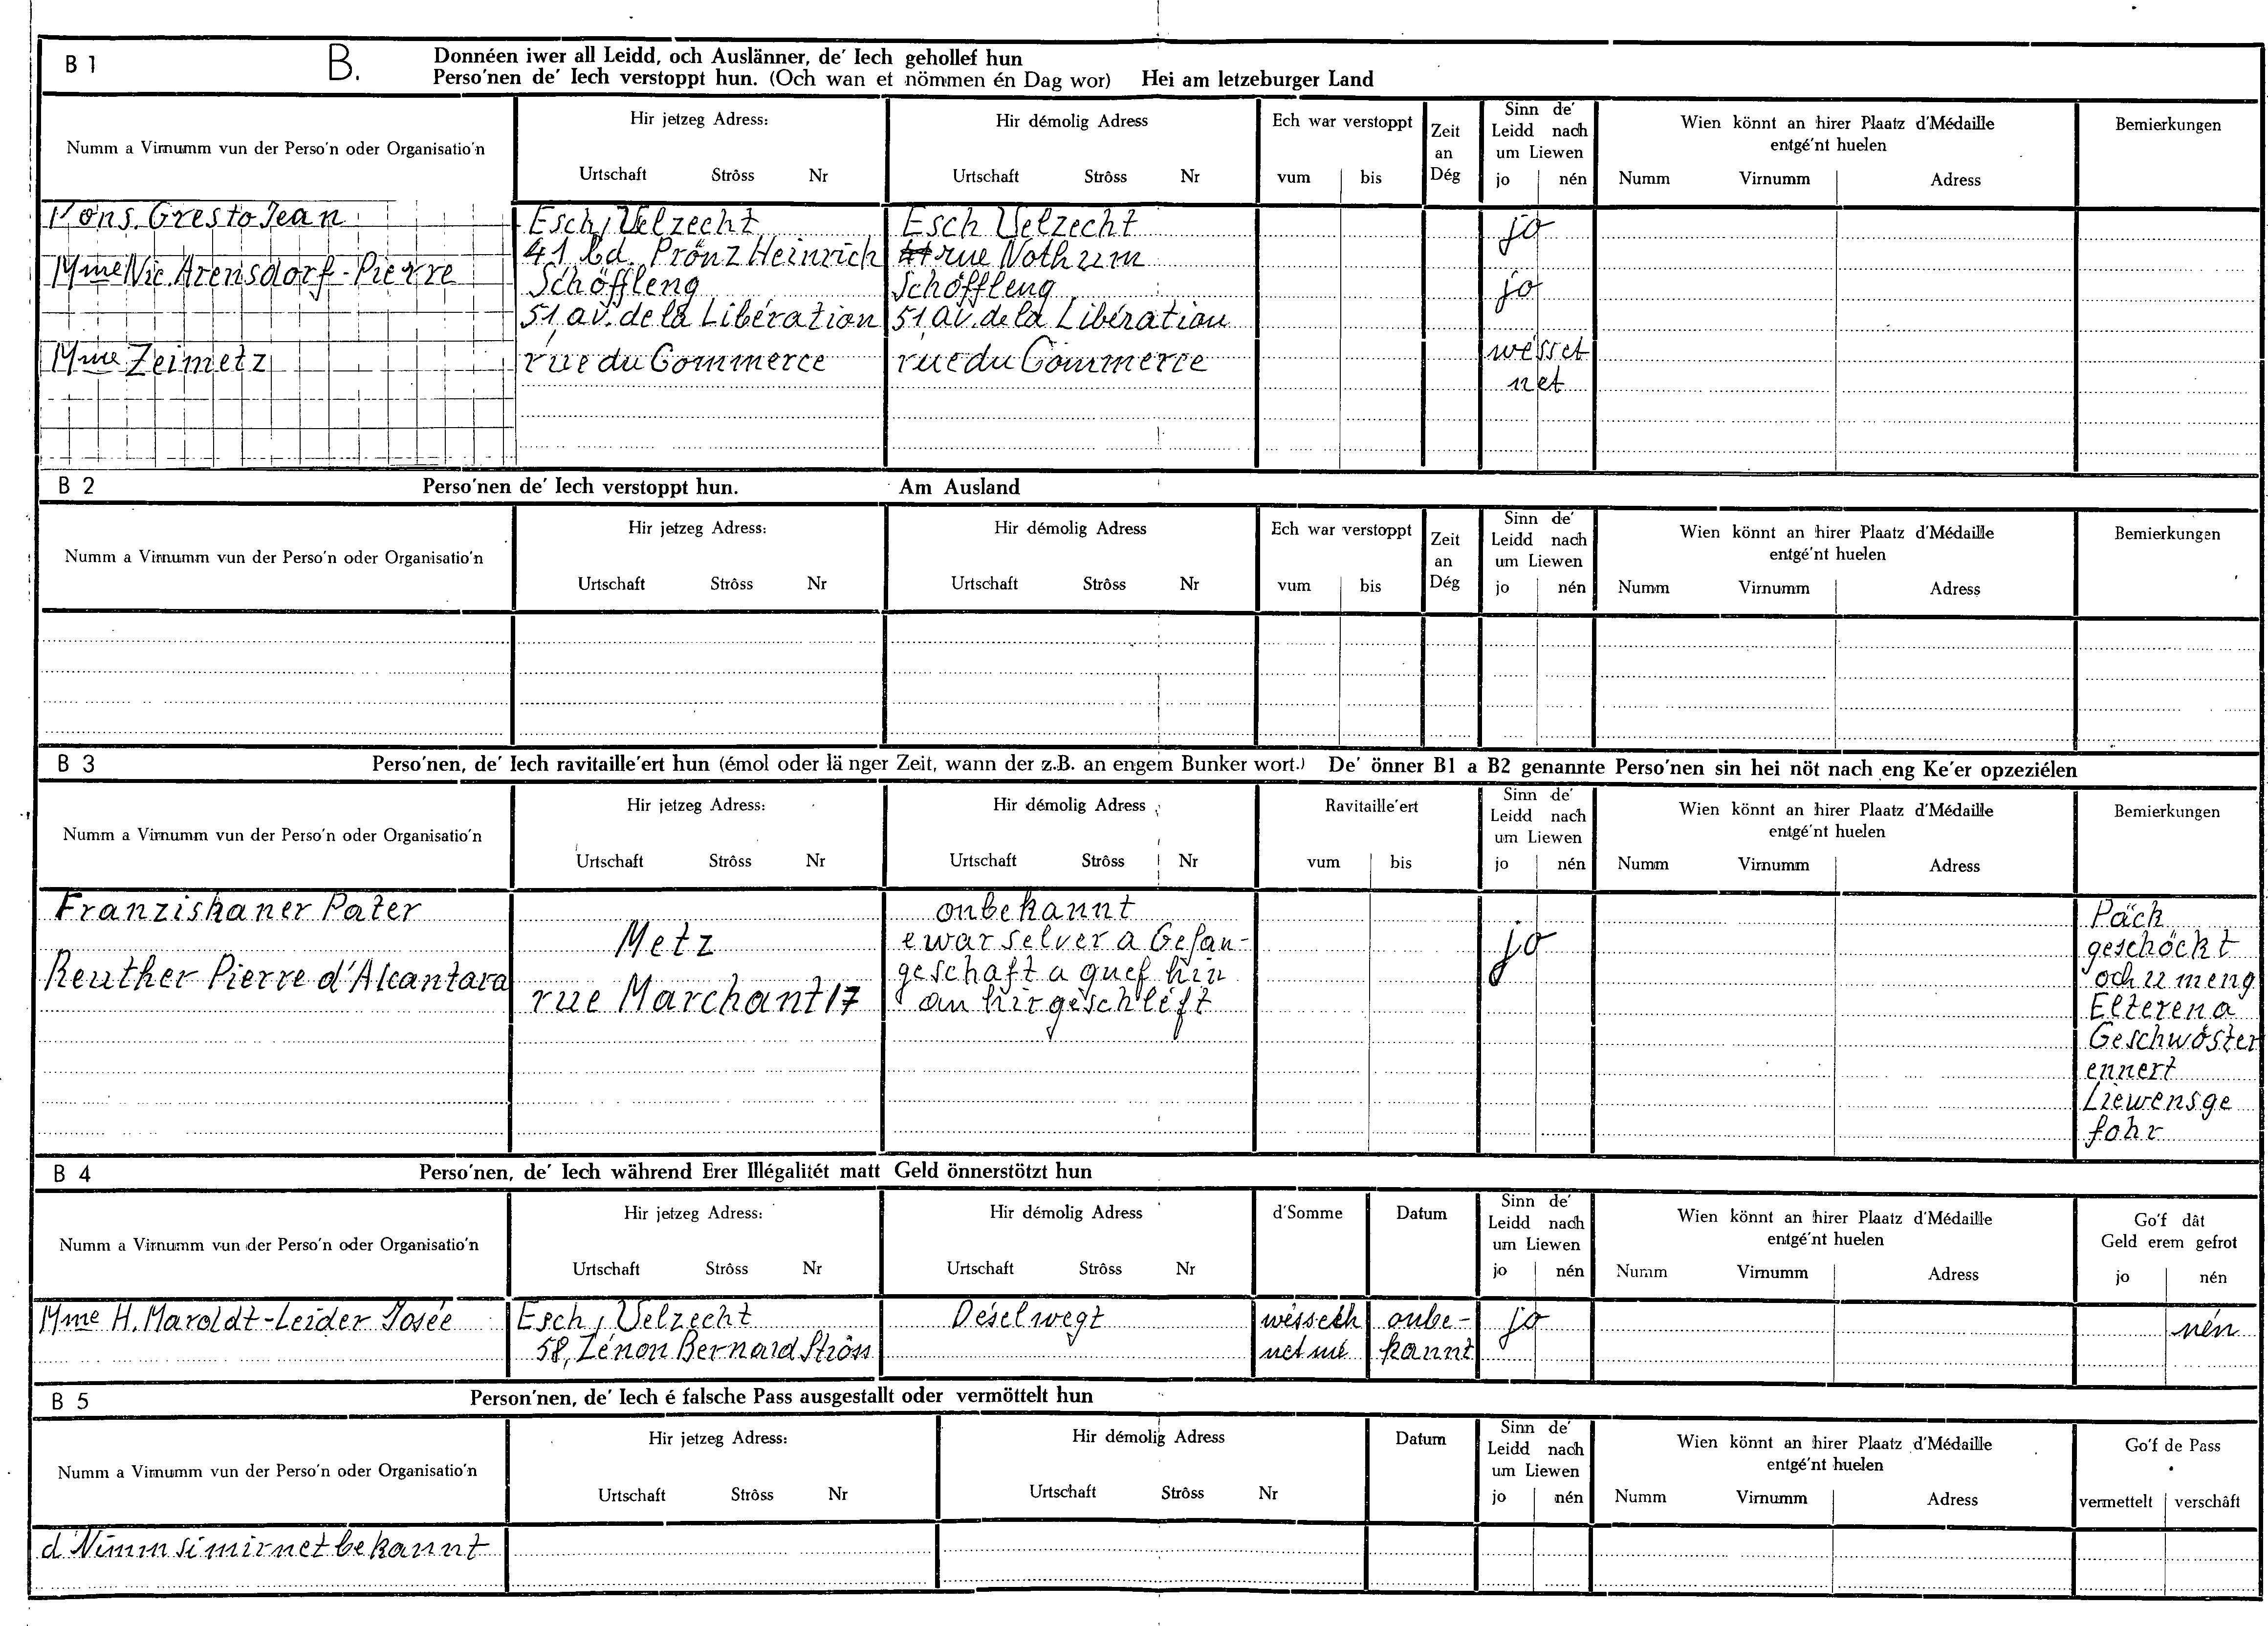 B 1 B. Donnéen iwer all Leidd, och Auslänner, de' Iech gehollef hun
Perso'nen de' Iech verstoppt hun. (Och wan et nömmen én Dag wor) Hei am letzeburger Land
Numm a Virnumm vun der Perso'n oder Organisatio'n
Hir jetzeg Adress:
Urtschaft Strôss Nr
Hir démolig Adress
Urtschaft Strôss Nr
Ech war verstoppt
vum bis
Zeit
an
Dég
Sinn de'
Leidd nach
um Liewen
jo nén
Wien könnt an hirer Plaatz d'Médaille
entgé'nt huelen
Numm Virnumm Adress
Bemierkungen
Mons. Gresto Jean Esch, Uelzecht Esch Uelzecht jo
41 bd. Prönz Heinrich rue Nothum
Mme Nic. Arensdorf-Pierre Schöffleng Schöffleng jo
51, av. de la Libération 51 av. de la Libération
Mme Zeimetz rue du Commerce rue du Commerce wésset
net
B 2 Perso'nen de' Iech verstoppt hun. Am Ausland
Numm a Virnumm vun der Perso'n oder Organisatio'n
Hir jetzeg Adress:
Urtschaft Strôss Nr
Hir démolig Adress
Urtschaft Strôss Nr
Ech war verstoppt
vum bis
Zeit
an
Dég
Sinn de'
Leidd nach
um Liewen
jo nén
Wien könnt an hirer Plaatz d'Médaille
entgé'nt huelen
Numm Virnumm Adress
Bemierkungen
B 3 Perso'nen, de' Iech ravitaille'ert hun (émol oder länger Zeit, wann der z.B. an engem Bunker wort.) De' önner B1 a B2 genannte Perso'nen sin hei nöt nach eng Ke'er opzeziélen
Numm a Virnumm vun der Perso'n oder Organisatio'n
Hir jetzeg Adress:
Urtschaft Strôss Nr
Hir démolig Adress
Urtschaft Strôss Nr
Ravitaille'ert
vum bis
Sinn de'
Leidd nach
um Liewen
jo nén
Wien könnt an hirer Plaatz d'Médaille
entgé'nt huelen
Numm Virnumm Adress
Bemierkungen
Franziskaner Pater
Reuther Pierre d'Alcantara
Metz
rue Marchant 17
onbekannt
e war selver a Gefan-
geschaft a guef hin
an hir geschléft
jo
Päck
geschöckt
och u meng
Elteren a
Geschwöster
ennert
Liewensge
fohr
B 4 Perso'nen, de' Iech während Erer Illégalitét matt Geld önnerstötzt hun
Numm a Virnumm vun der Perso'n oder Organisatio'n
Hir jetzeg Adress:
Urtschaft Strôss Nr
Hir démolig Adress
Urtschaft Strôss Nr
d'Somme
Datum
Sinn de'
Leidd nach
um Liewen
jo nén
Wien könnt an hirer Plaatz d'Médaille
entgé'nt huelen
Numm Virnumm Adress
Go'f dât
Geld erem gefrot
jo nén
Mme H. Maroldt-Leider Josée Esch, Uelzecht Déselwegt wéssech onbe- jo nén
58, Zénon Bernard Ströss net mé kannt
B 5 Person'nen, de' Iech é falsche Pass ausgestallt oder vermöttelt hun
Numm a Virnumm vun der Perso'n oder Organisatio'n
Hir jetzeg Adress:
Urtschaft Strôss Nr
Hir démolig Adress
Urtschaft Strôss Nr
Datum
Sinn de'
Leidd nach
um Liewen
jo nén
Wien könnt an hirer Plaatz d'Médaille
entgé'nt huelen
Numm Virnumm Adress
Go'f de Pass
vermettelt verschâft
d'Nimm si mir net bekannt